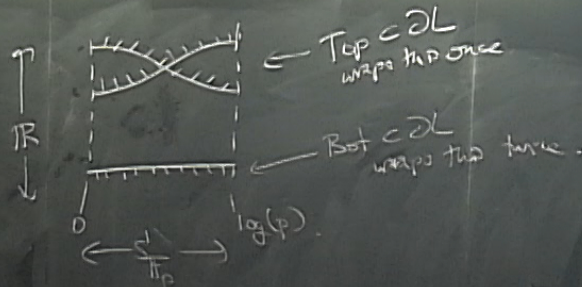 ← Top ⊂ ∂L
wraps thp once
ℝ
← Bot ⊂ ∂L
wraps thp twice.
0
log(p).
S¹
π_p